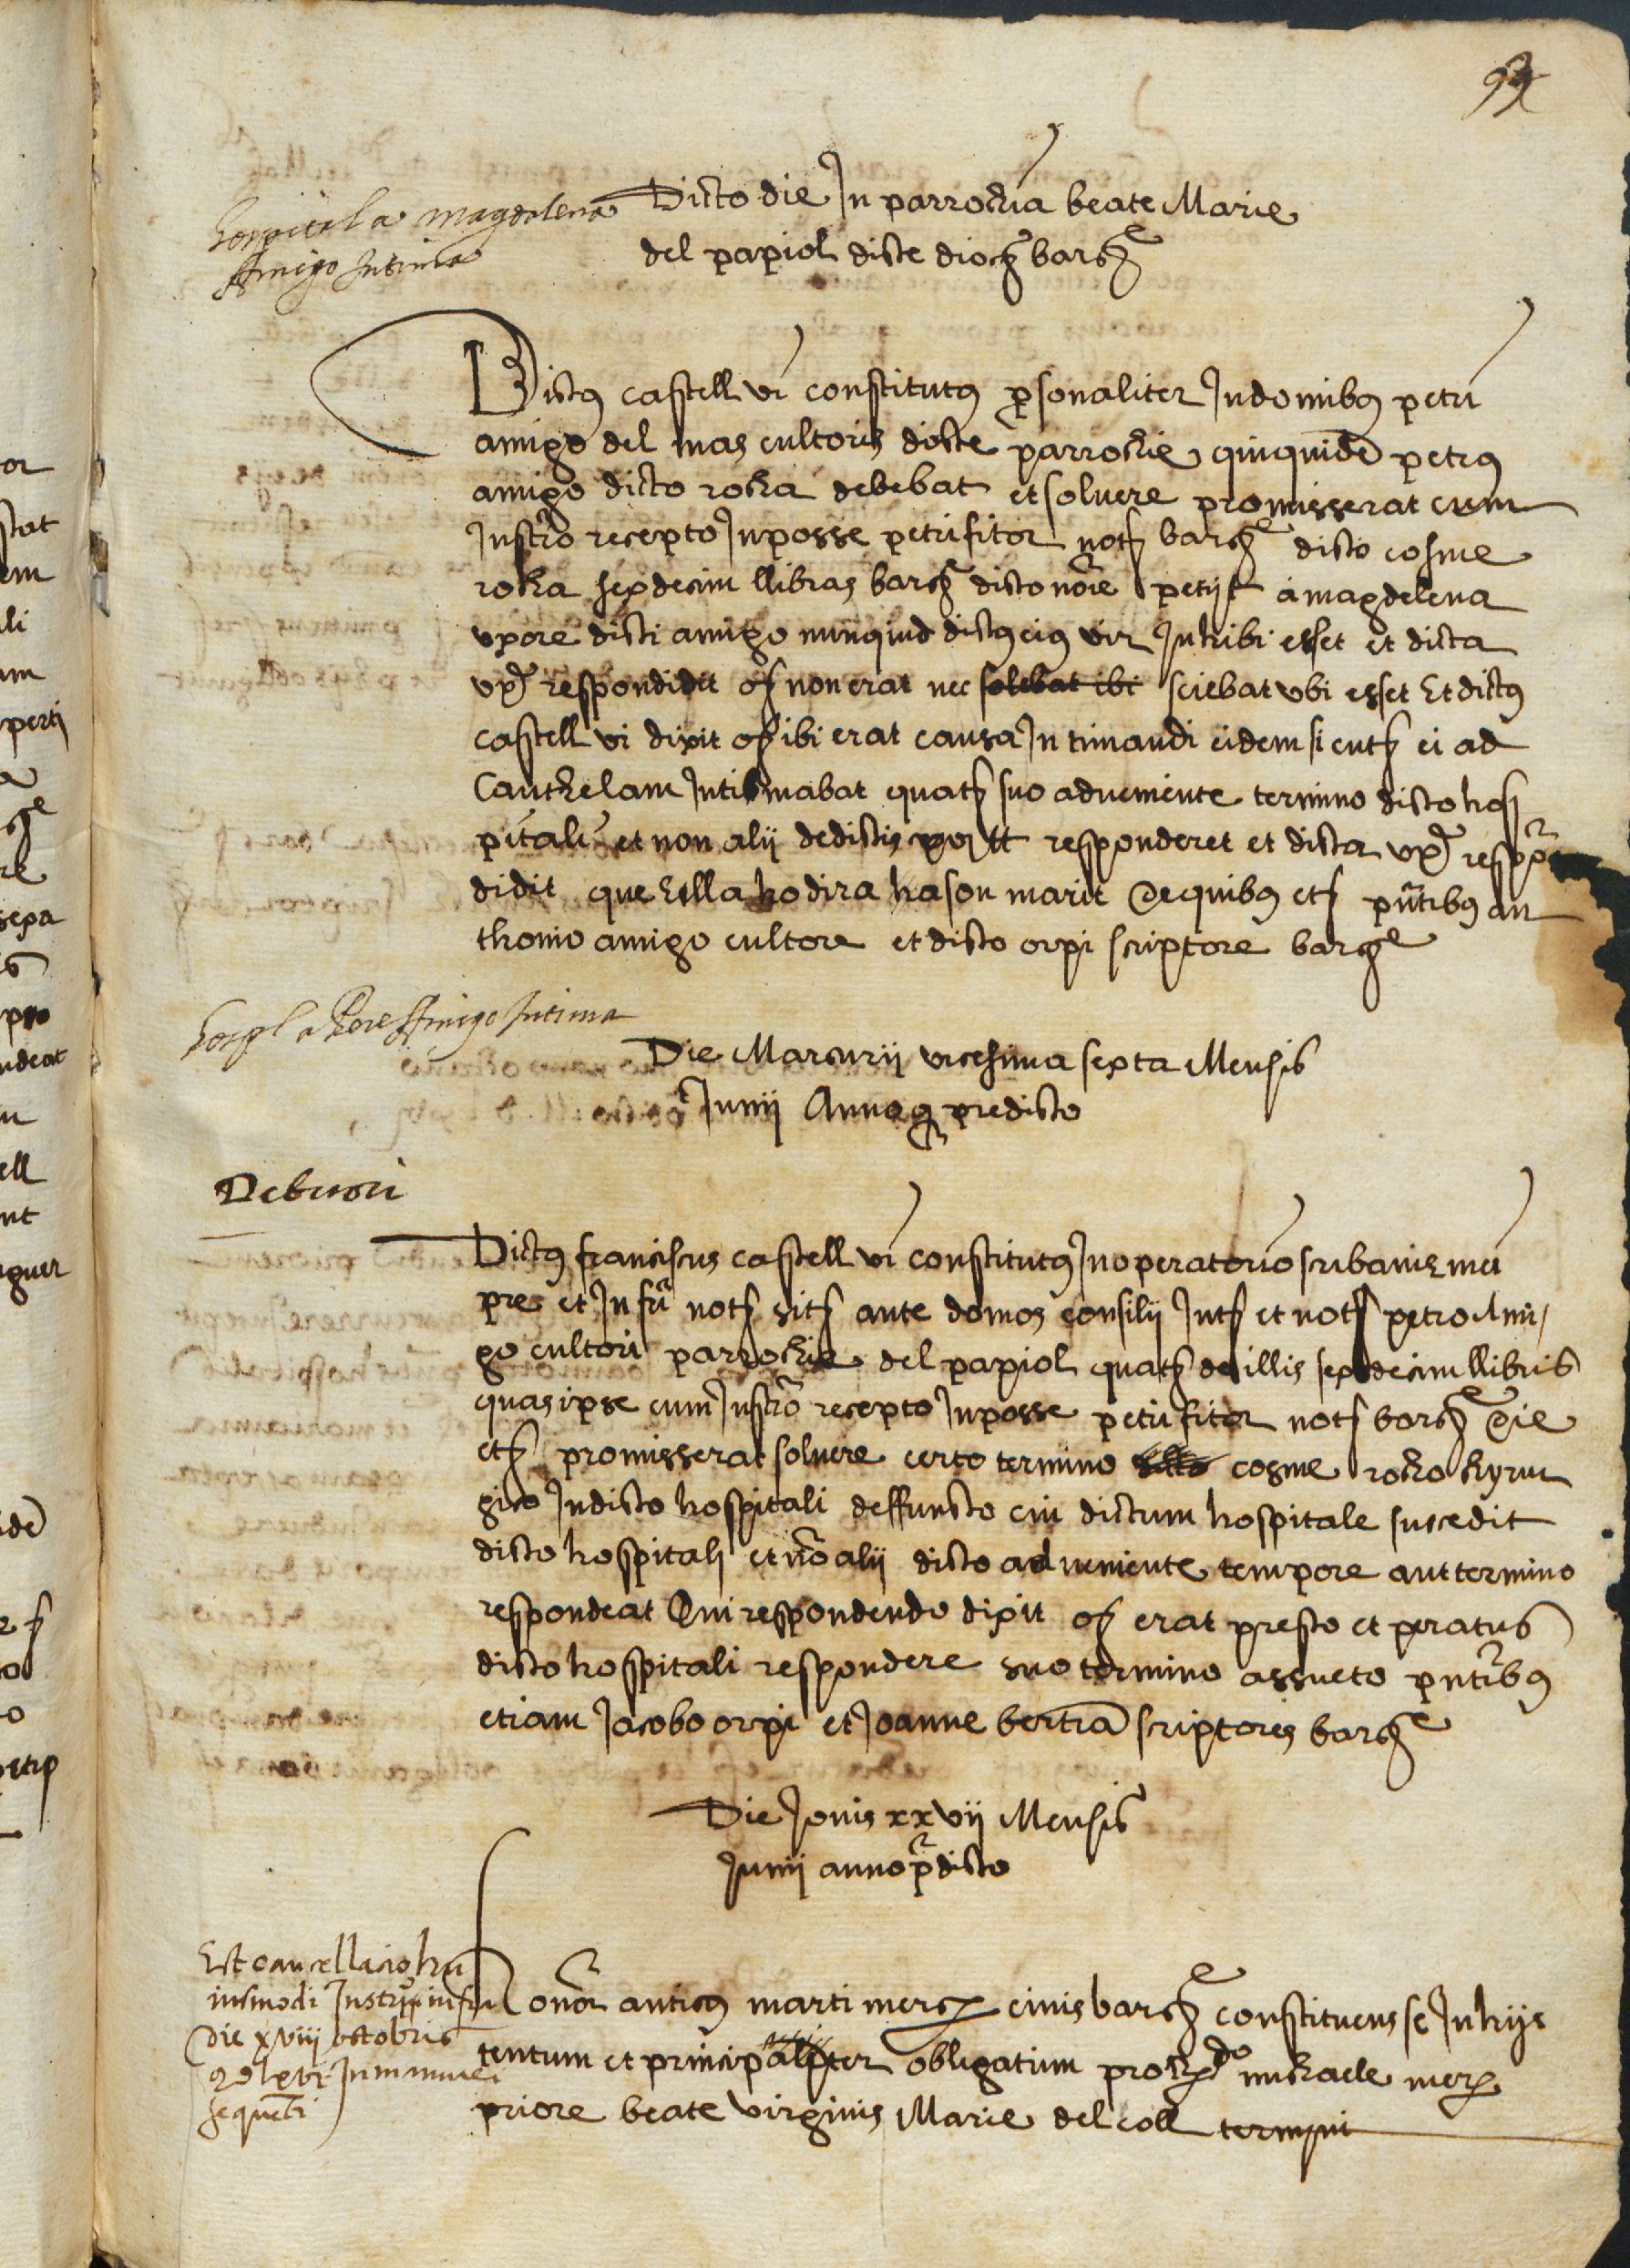 Dicto die In parrochia beate Marie
del papiol dicte dioc̃ barc̃e
hospital a magdalena
Amigo Intima
Dictus castell vi constitutus personaliter In domibus petri
amigo del mas cultoris dicte parrochie quiquidẽ petrus
amigo dicto rocha debebat et soluere promisserat cum
Instrõ recepto In posse petri fitor not̃ barc̃e dicto cosme
rocha sexdecim llibras barc̃ dicto noĩe petijt a magdelena
vxore dicti amigo nunquid dictus eius vir Inhibi esset et dicta
vxor̃ respondidit q̃ non erat nec solebat ibi sciebat vbi esset Et dictus
castell vi dixit q̃ ibi erat causa Intimandi eidem sicut̃ ei ad
Cauthelam Intimabat quat̃ suo adueniente termino dicto hos
pitali et non alij dedictis xvj ll responderet et dicta vxor̃ respõ
didit que Ella ho dira ha son marit De quibus et̃ pñtibus an
thonio amigo cultore et dicto orpi scriptore barc̃e
hospl a Pere Amigo Intima
Die Mercurij vicesima sexta Mensis
Junij Annoq̃ predicto
Debitori
Dictus franciscus castell vi constitutus In operatorio scribanie mei
pre et Infrã not̃ sit̃ ante domos consilij Int̃ et not̃ petro Ami
go cultori parrochie del papiol quat̃ de illis sexdecim llibris
quas ipse cum Instrõ recepto In posse petri fitor not̃ barc̃e Die
et̃ promisserat soluere certo termino cosme rocho chyrur
gico In dicto hospitali deffuncto cui dictum hospitale succedit
dicto hospitali et nõ alij dicto adueniente tempore aut termino
respondeat Qui respondendo dixit q̃ erat presto et peratus
dicto hospitali respondere suo termino assueto pñtibus
etiam Jacobo orpi et Joanne bertrã scriptoris barc̃e
Die Jouis xxvij Mensis
Junij anno p̃dicto
Est cancellatio hu
iusmodi Instrũ infra
die xviij octobris
In manuali
sequẽti
onor̃ anticus marti merc̃ ciuis barc̃e constituens se In hijs
tentum et principaliter obligatum pro michaele merc̃
priore beate virginis Marie del coll termini